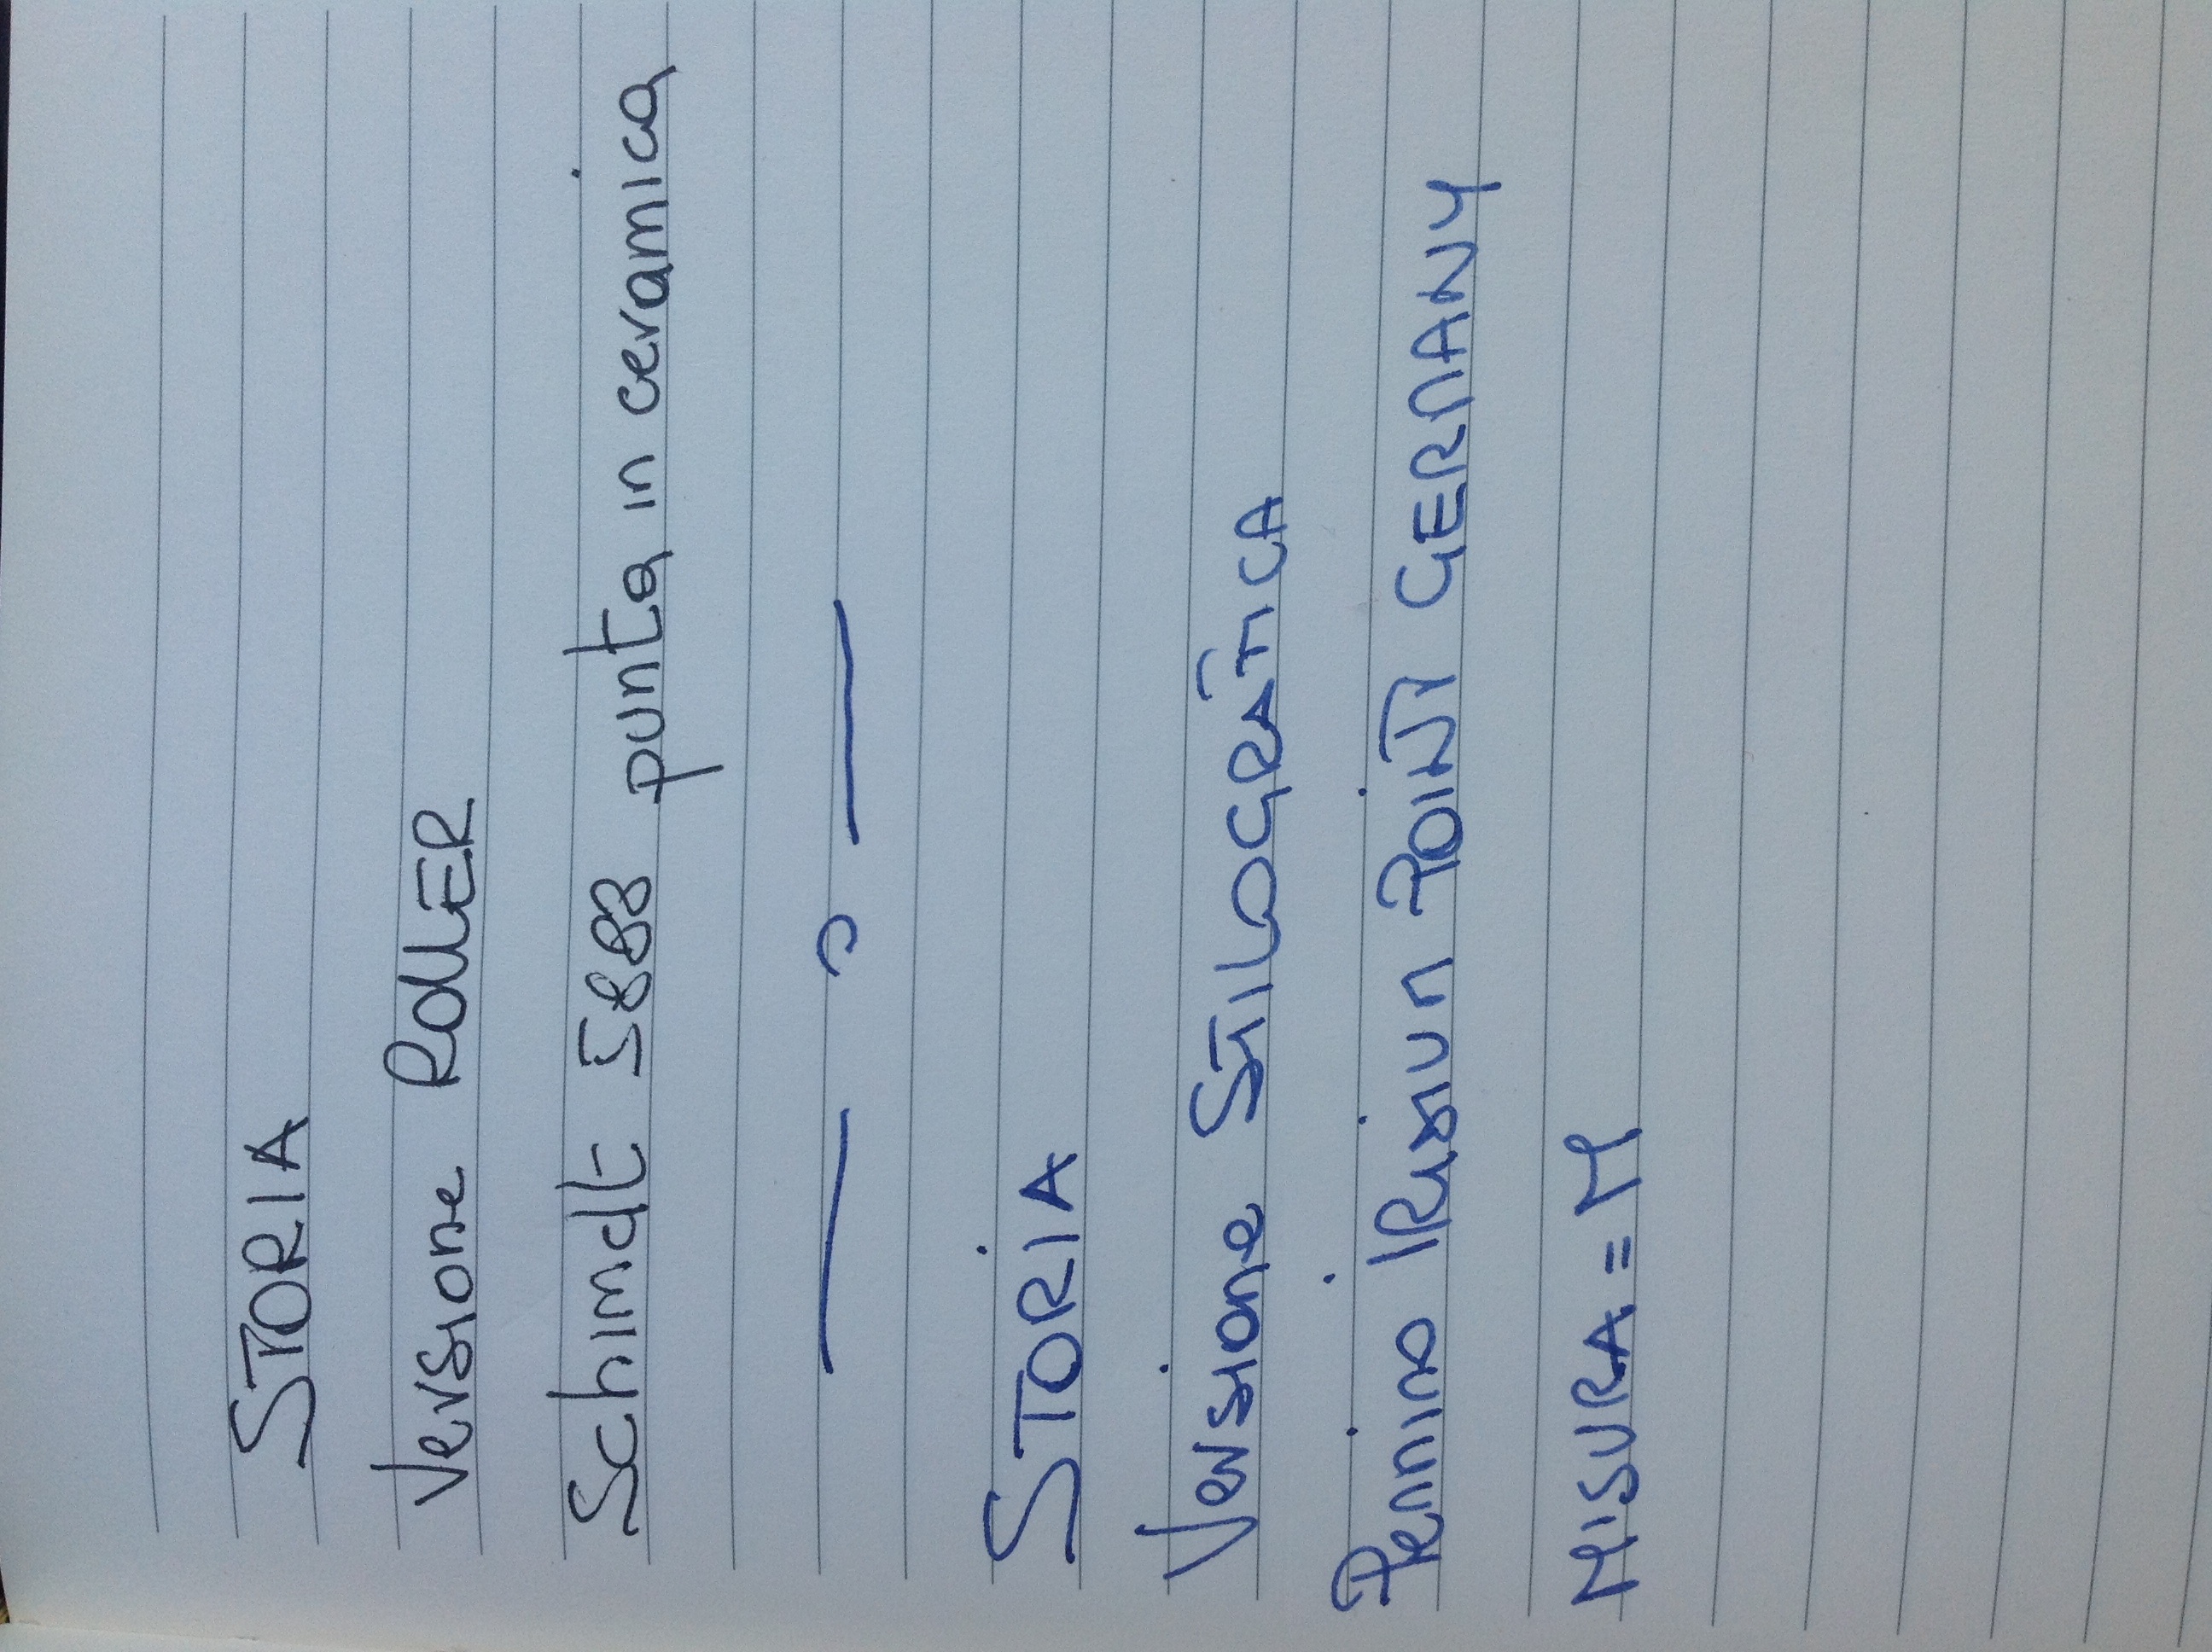 STORIA
Versione ROLLER
Schimdt 5888 punta in ceramica
STORIA
Versione STILOGRAFICA
Pennino IRIDIUM POINT GERMANY
MISURA = M